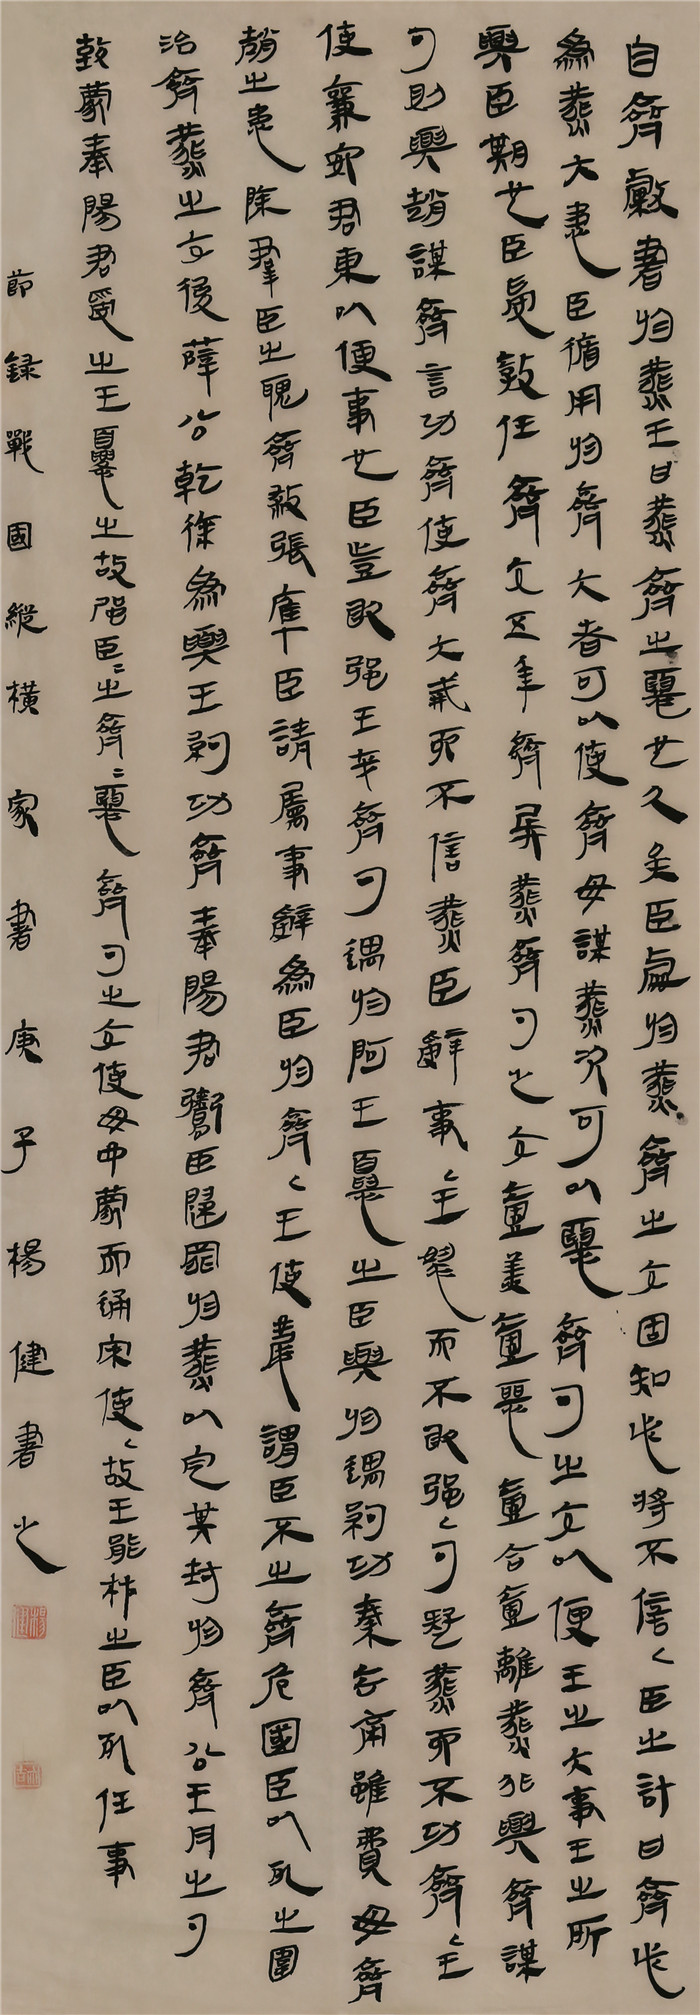 自齊獻書於燕王曰燕齊之惡也久矣臣處於燕齊之交固知必將不信〻臣之計曰齊必
為燕大患臣循用於齊大者可以使齊毋謀燕次可以惡齊勺之交以便王之大事王之所
與臣期也臣受教任齊交五年齊兵燕齊勺之交壹美壹惡壹合壹離燕非與齊謀
勺則與趙謀齊言功齊使齊大戒而不信燕臣辭事〻王怒而不敢強〻勺疑燕而不功齊〻王
使襄安君東以便事也臣豈敢強王哉齊勺遇於阿王憂之臣與於遇約功秦去帝雖費毋齊
趙之患除羣臣之聭齊殺張庫臣請屬事辭為臣於齊〻王使慶謂臣不之齊危國臣以死之圍
治齊燕之交後薛公乾徐為與王約功齊奉陽君鬻臣歸罪於燕以定其封於齊公玉丹之勺
致蒙奉陽君受之王憂之故強臣〻之齊〻惡齊勺之交使毋予蒙而通宋使〻故王能材之臣以死任事
節錄戰國縱橫家書庚子楊健書之